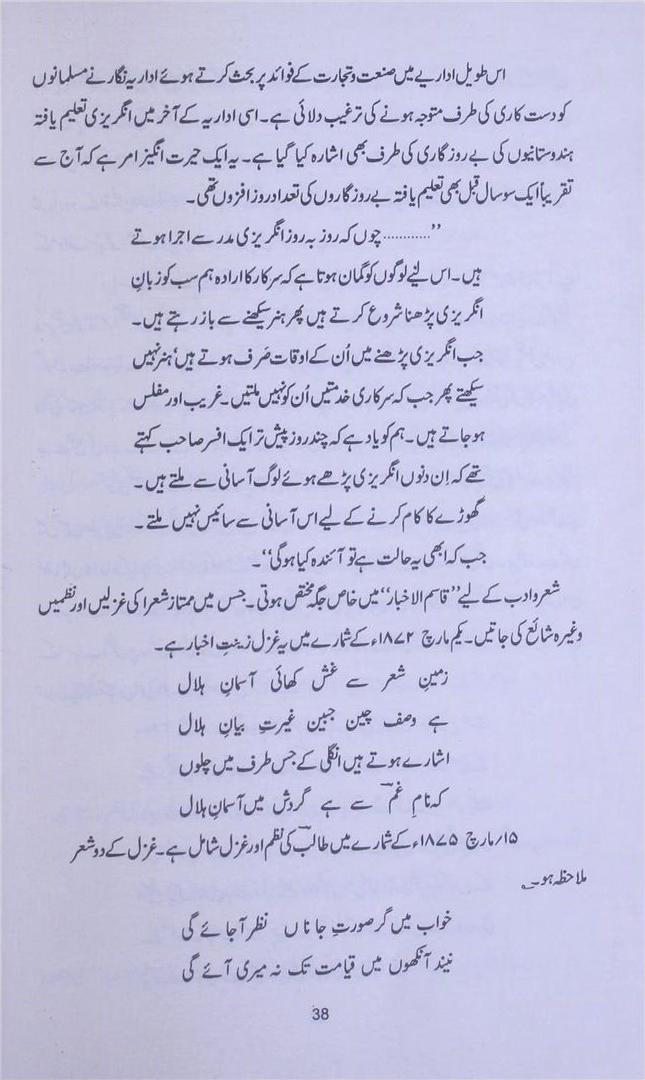 اس طویل اداریے میں صنعت و تجارت کے فوائد پر بحث کرتے ہوئے اداریہ نگار نے مسلمانوں
کو دست کاری کی طرف متوجہ ہونے کی ترغیب دلائی ہے۔ اسی اداریہ کے آخر میں انگریزی تعلیم یافتہ
ہندوستانیوں کی بے روزگاری کی طرف بھی اشارہ کیا گیا ہے۔ یہ ایک حیرت انگیز امر ہے کہ آج سے
تقریباً ایک سو سال قبل بھی تعلیم یافتہ بے روزگاروں کی تعداد روز افزوں تھی۔
”............ چوں کہ روز بہ روز انگریزی مدرسے اجرا ہوتے
ہیں۔ اس لئے لوگوں کو گمان ہوتا ہے کہ سرکار کا ارادہ ہم سب کو زبانِ
انگریزی پڑھنا شروع کرتے ہیں پھر ہنر سیکھنے سے باز رہتے ہیں۔
جب انگریزی پڑھنے میں اُن کے اوقات صَرف ہوتے ہیں‘ ہنر نہیں
سیکھتے پھر جب کہ سرکاری خدمتیں اُن کو نہیں ملتیں۔ غریب اور مفلس
ہو جاتے ہیں۔ ہم کو یاد ہے کہ چند روز پیش تر ایک افسر صاحب کہتے
تھے کہ اِن دنوں انگریزی پڑھے ہوئے لوگ آسانی سے ملتے ہیں۔
گھوڑے کا کام کرنے کے لیے اس آسانی سے سائیس نہیں ملتے۔
جب کہ ابھی یہ حالت ہے تو آئندہ کیا ہوگی“۔
شعر و ادب کے لیے ”قاسم الاخبار“ میں خاص جگہ مختص ہوتی۔ جس میں ممتاز شعرا کی غزلیں اور نظمیں
وغیرہ شائع کی جاتیں۔ یکم مارچ ۱۸۷۲ء کے شمارے میں یہ غزل زینتِ اخبار ہے۔
زمینِ شعر سے غش کھائی آسمانِ ہلال
ہے وصف چین جبین غیرتِ بیانِ ہلال
اشارے ہوتے ہیں انگلی کے جس طرف میں چلوں
کہ نامِ غمؔ سے ہے گردش میں آسمانِ ہلال
۱۵/ مارچ ۱۸۷۵ء کے شمارے میں طالبؔ کی نظم اور غزل شامل ہے۔ غزل کے دو شعر
ملاحظہ ہو۔
خواب میں گر صورتِ جاناں نظر آجائے گی
نیند آنکھوں میں قیامت تک نہ میری آئے گی
38